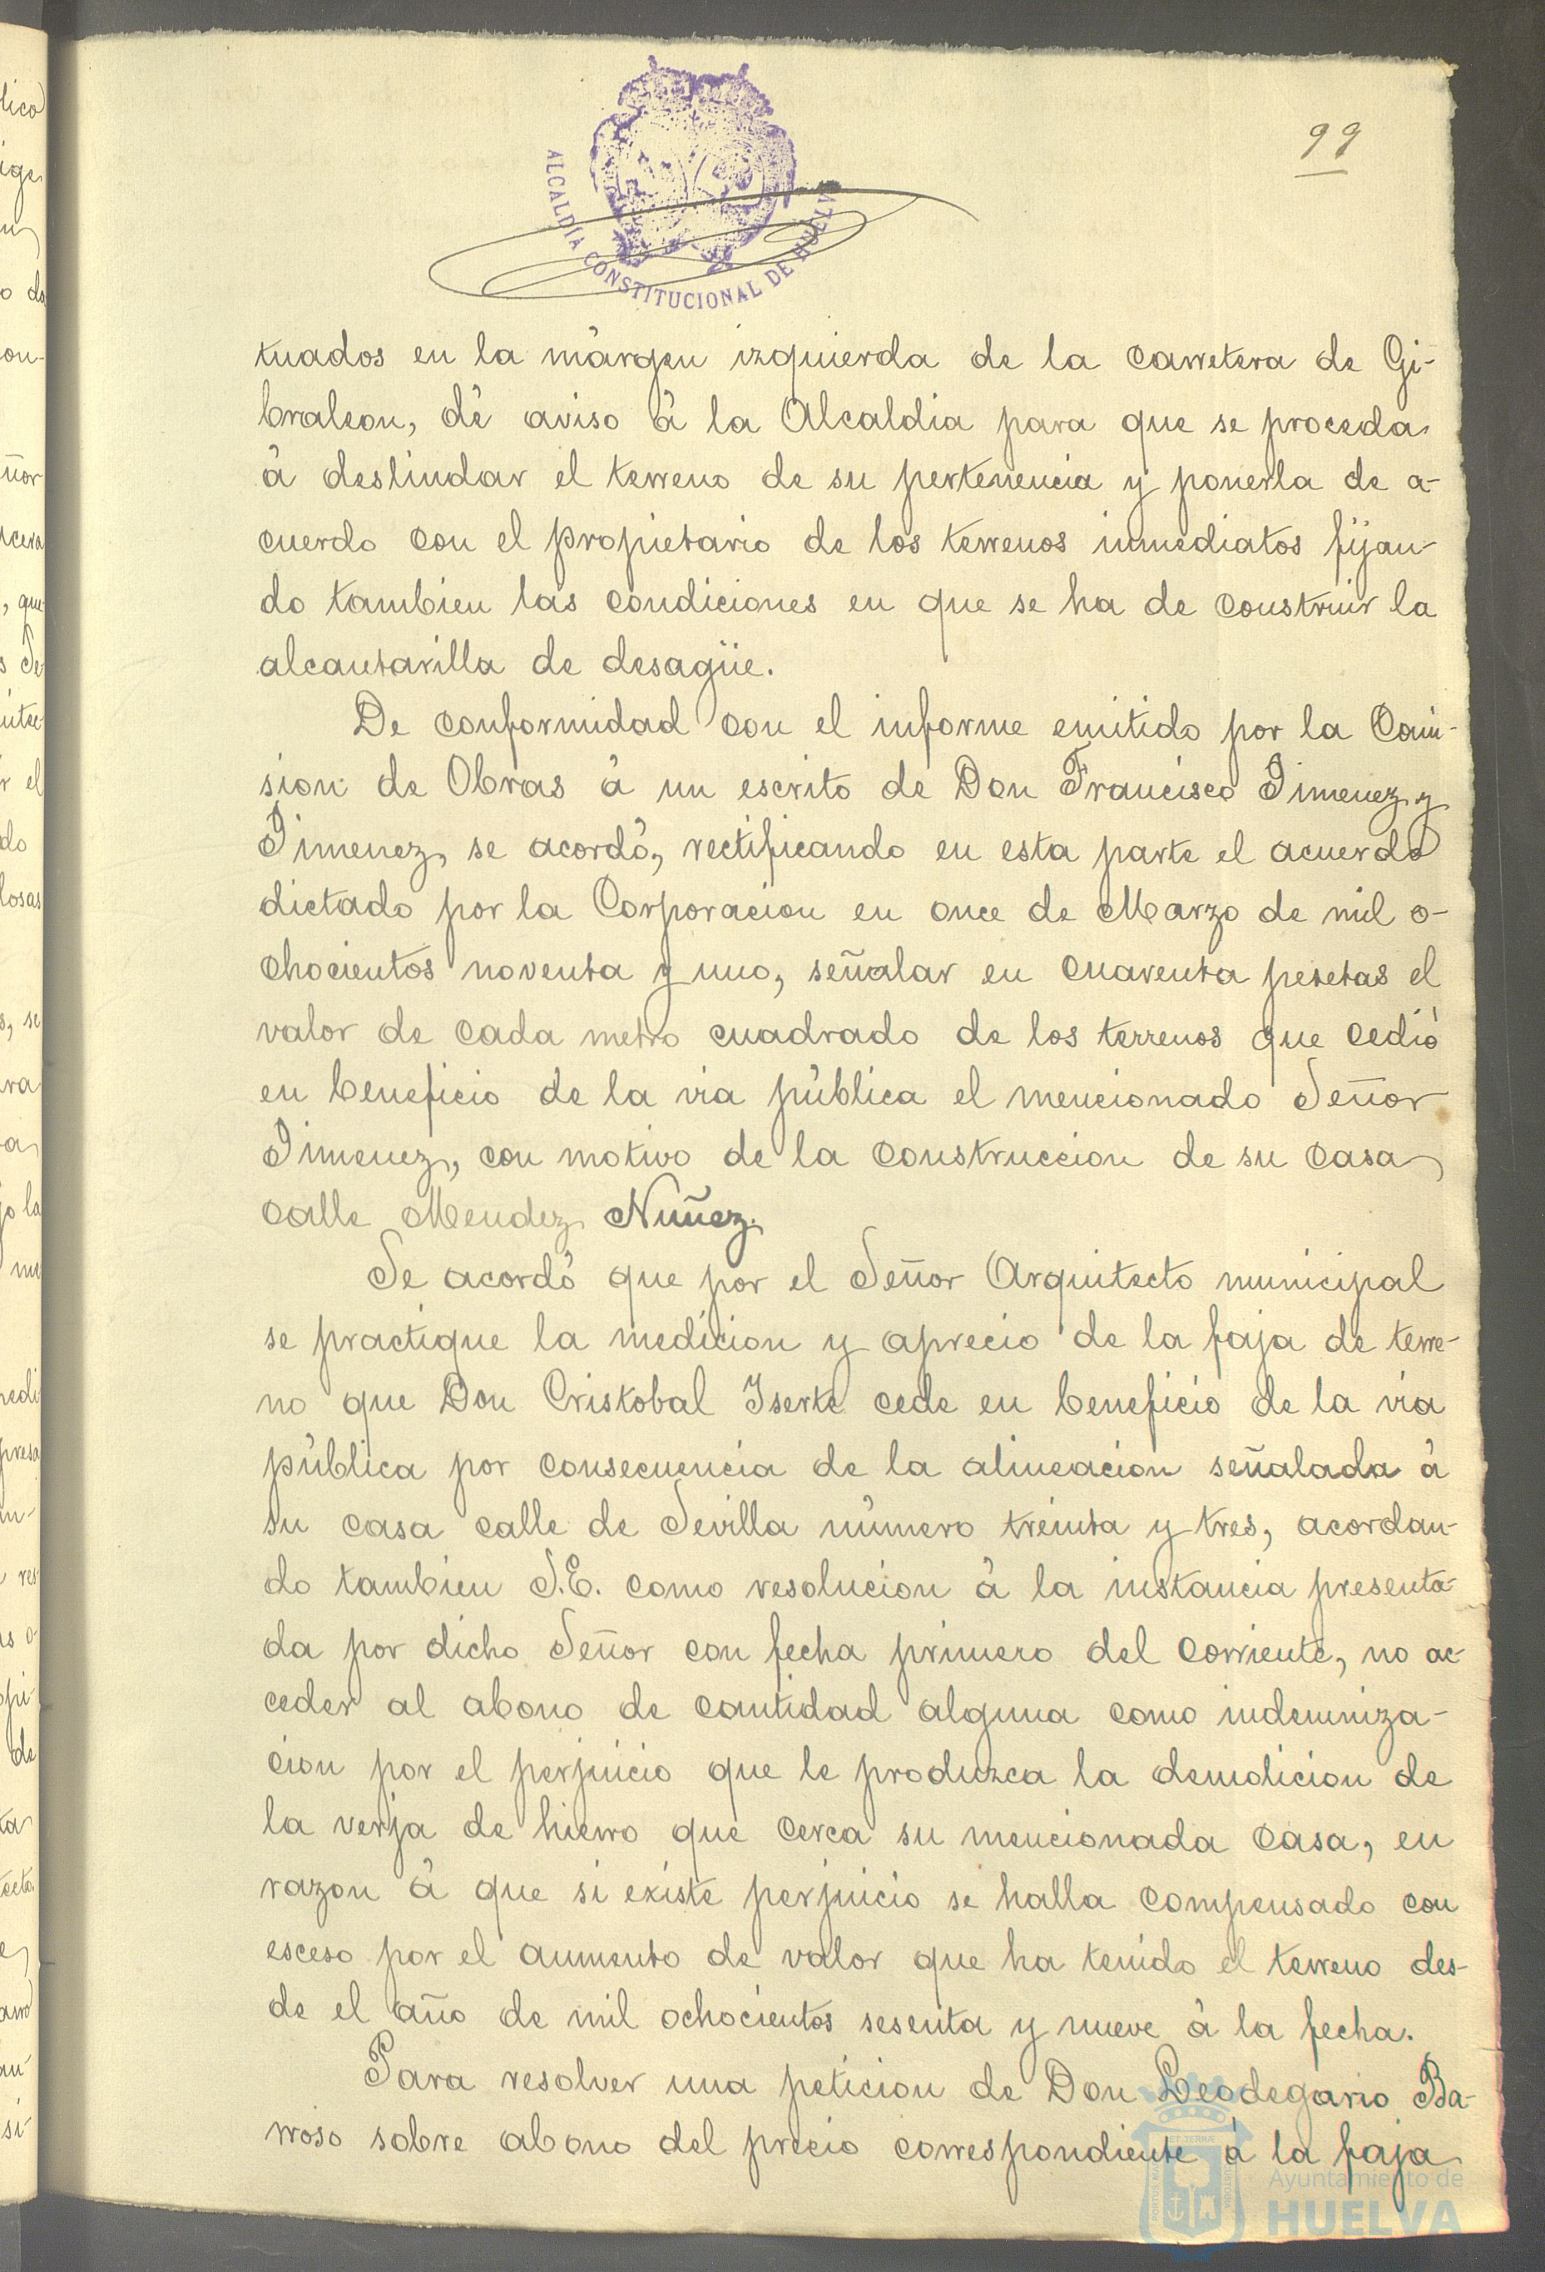 99
ALCALDIA CONSTITUCIONAL DE HUELVA
tuados en la márgen izquierda de la carretera de Gi-
braleon, dé aviso á la Alcaldia para que se proceda
á deslindar el terreno de su pertenencia y ponerla de a-
cuerdo con el propietario de los terrenos inmediatos fijan-
do tambien las condiciones en que se ha de construir la
alcantarilla de desagüe.
De conformidad con el informe emitido por la Comi-
sion de Obras á un escrito de Don Francisco Jimenez y
Jimenez, se acordó, rectificando en esta parte el acuerdo
dictado por la Corporacion en once de Marzo de mil o-
chocientos noventa y uno, señalar en cuarenta pesetas el
valor de cada metro cuadrado de los terrenos que cedió
en beneficio de la via pública el mencionado Señor
Jimenez, con motivo de la construccion de su casa
calle Mendez Nuñez.
Se acordó que por el Señor Arquitecto municipal
se practique la medicion y aprecio de la faja de terre-
no que Don Cristobal Iserte cede en beneficio de la via
pública por consecuencia de la alineacion señalada á
su casa calle de Sevilla número treinta y tres, acordan-
do tambien S.E. como resolucion á la instancia presenta-
da por dicho Señor con fecha primero del corriente, no ac-
ceder al abono de cantidad alguna como indemniza-
cion por el perjuicio que le produzca la demolicion de
la verja de hierro que cerca su mencionada casa, en
razon á que si existe perjuicio se halla compensado con
esceso por el aumento de valor que ha tenido el terreno des-
de el año de mil ochocientos sesenta y nueve á la fecha.
Para resolver una peticion de Don Leodegario Ba-
rroso sobre abono del precio correspondiente á la faja
Ayuntamiento de
HUELVA